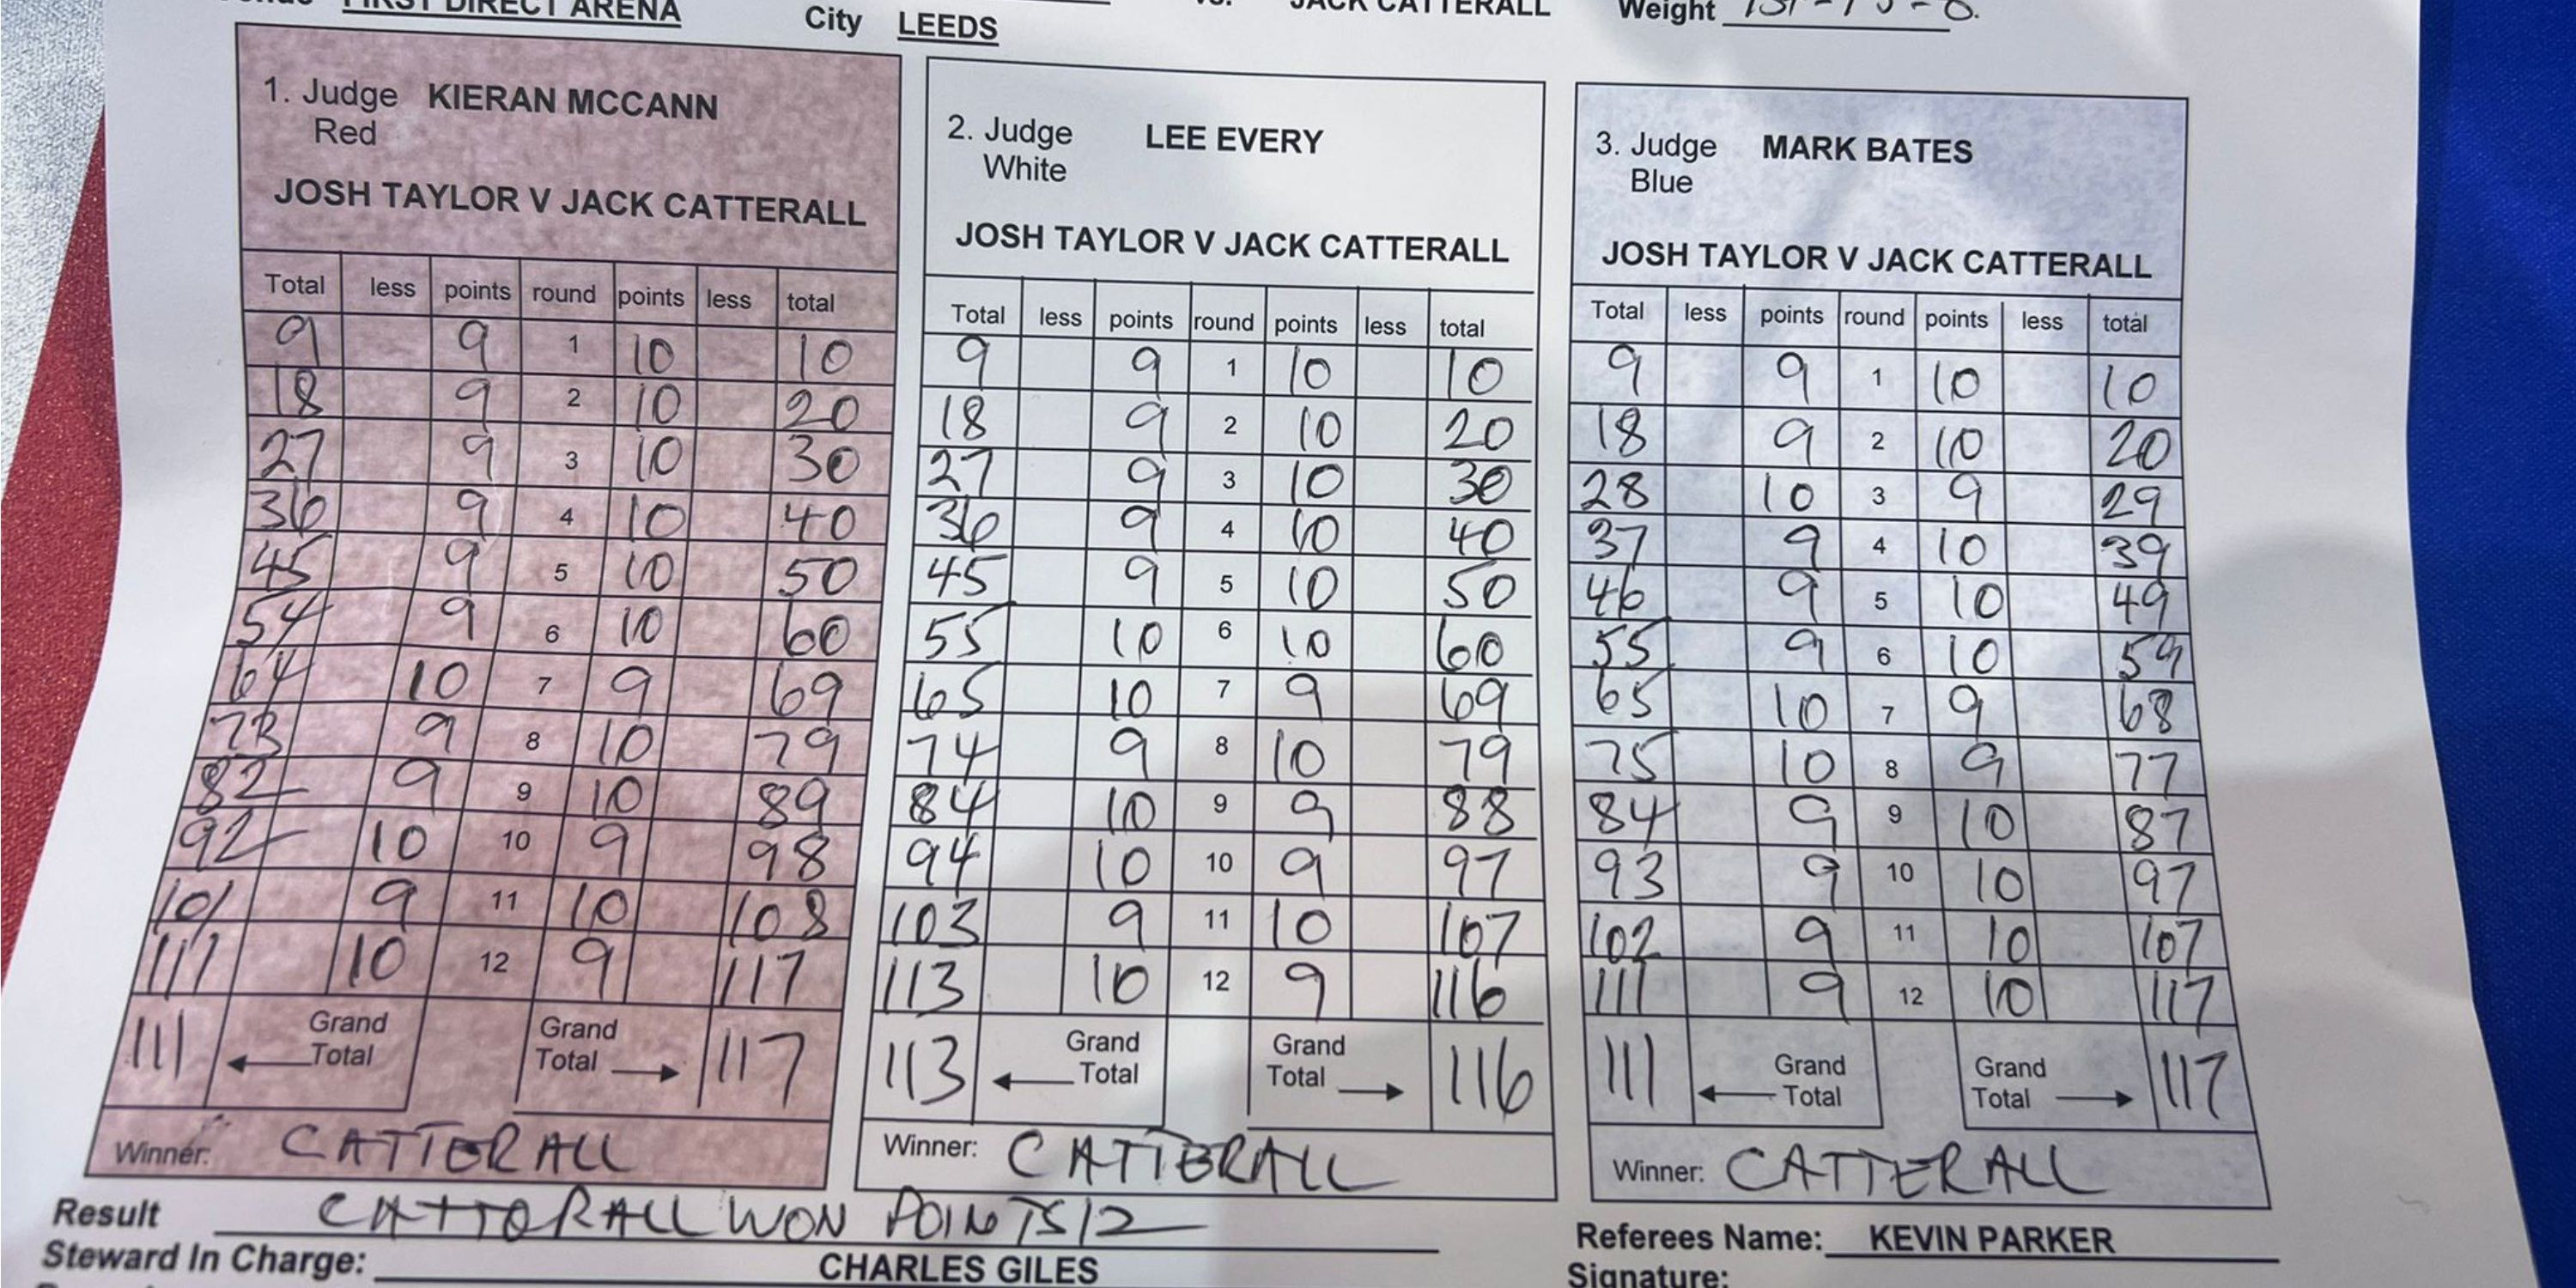 FIRST DIRECT ARENA City LEEDS vs. JACK CATTERALL Weight
1. Judge KIERAN MCCANN
Red
JOSH TAYLOR V JACK CATTERALL
Total less points round points less total
9 9 1 10 10
18 9 2 10 20
27 9 3 10 30
36 9 4 10 40
45 9 5 10 50
54 9 6 10 60
64 10 7 9 69
73 9 8 10 79
82 9 9 10 89
92 10 10 9 98
101 9 11 10 108
111 10 12 9 117
111 Grand Total Grand Total 117
Winner: CATTERALL
2. Judge LEE EVERY
White
JOSH TAYLOR V JACK CATTERALL
Total less points round points less total
9 9 1 10 10
18 9 2 10 20
27 9 3 10 30
36 9 4 10 40
45 9 5 10 50
55 10 6 10 60
65 10 7 9 69
74 9 8 10 79
84 10 9 9 88
94 10 10 9 97
103 9 11 10 107
113 10 12 9 116
113 Grand Total Grand Total 116
Winner: CATTERALL
3. Judge MARK BATES
Blue
JOSH TAYLOR V JACK CATTERALL
Total less points round points less total
9 9 1 10 10
18 9 2 10 20
28 10 3 9 29
37 9 4 10 39
46 9 5 10 49
55 9 6 10 59
65 10 7 9 68
75 10 8 9 77
84 9 9 10 87
93 9 10 10 97
102 9 11 10 107
111 9 12 10 117
111 Grand Total Grand Total 117
Winner: CATTERALL
Result CATTORALL WON POINTS 12
Referees Name: KEVIN PARKER
Steward In Charge: CHARLES GILES
Signature: